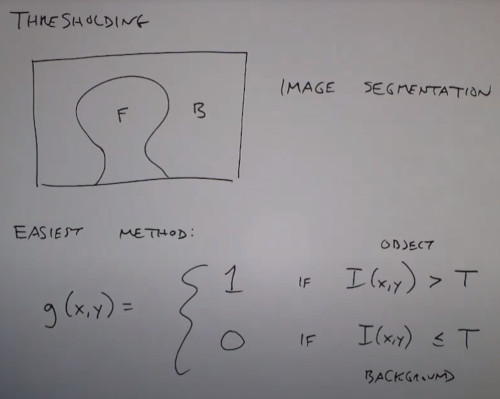 THRESHOLDING
F B
IMAGE SEGMENTATION
EASIEST METHOD:
OBJECT
g(x,y) = { 1 IF I(x,y) > T
0 IF I(x,y) ≤ T
BACKGROUND